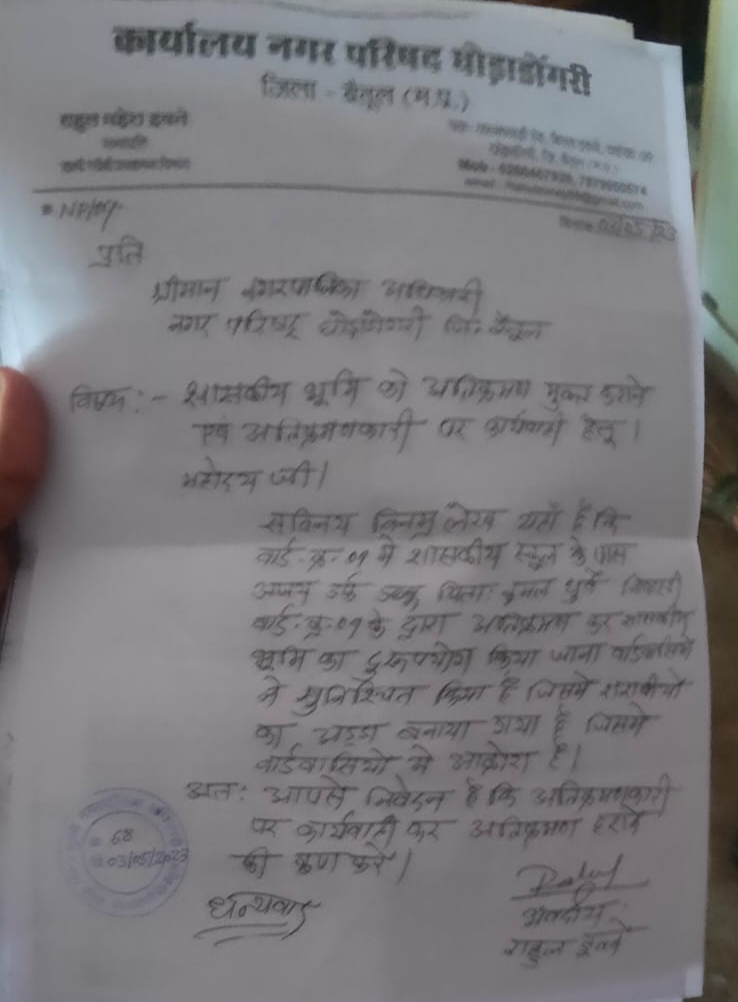 कार्यालय नगर परिषद घोड़ाडोंगरी
जिला - बैतूल (म.प्र.)
राहुल महेश इवने
सभापति
प्रति
श्रीमान नगरपालिका अधिकारी
नगर परिषद घोड़ाडोंगरी जि. बैतूल
विषय :- शासकीय भूमि को अतिक्रमण मुक्त कराने
एवं अतिक्रमणकारी पर कार्यवाही हेतू।
महोदय जी।
सविनय विनम्र लेख यहाँ है कि
वार्ड-क्र-09 मे शासकीय स्कूल के पास
उर्फ पिता धुर्वे निवासी
वार्ड-क्र-09 के द्वारा अतिक्रमण कर शासकीय
भूमि का दुरूपयोग किया जाना वार्डवासियो
ने सुनिश्चित किया है जिसमे शराबीयो
का अड्डा बनाया गया है जिससे
वार्डवासियो मे आक्रोश है।
अतः आपसे निवेदन है कि अतिक्रमणकारी
पर कार्यवाही कर अतिक्रमण हटाने
की कृपा करे।
68
03/05/2023
धन्यवाद
Rahul
भवदीय
राहुल इवने